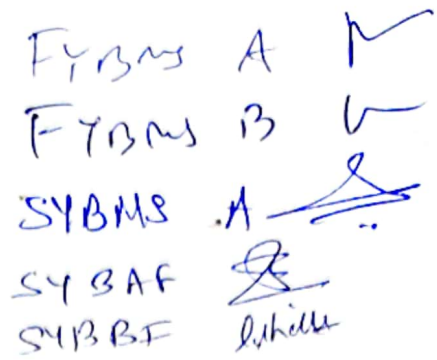 FYBMS A
FYBMS B
SYBMS A
SYBAF
SYBBF